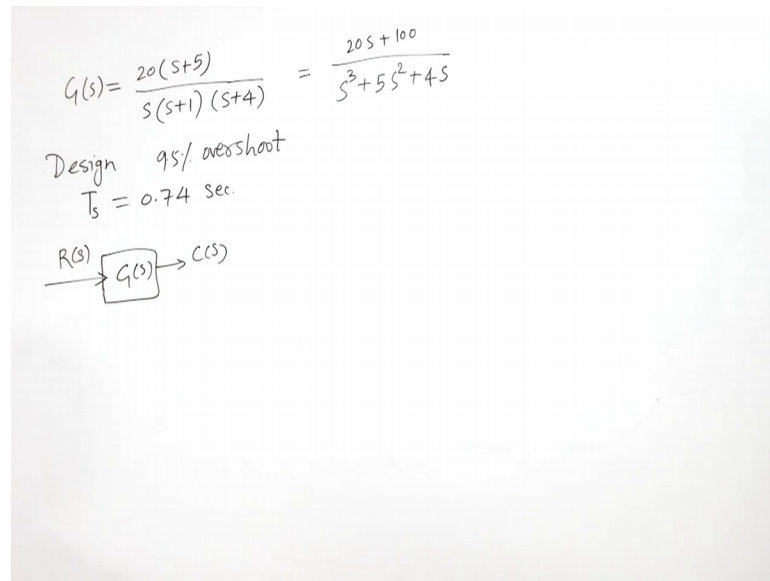 G(s) = 20(s+5) / s(s+1)(s+4) = 20s+100 / s³+5s²+4s
Design 95% overshoot
Ts = 0.74 sec.
R(s) G(s) C(s)